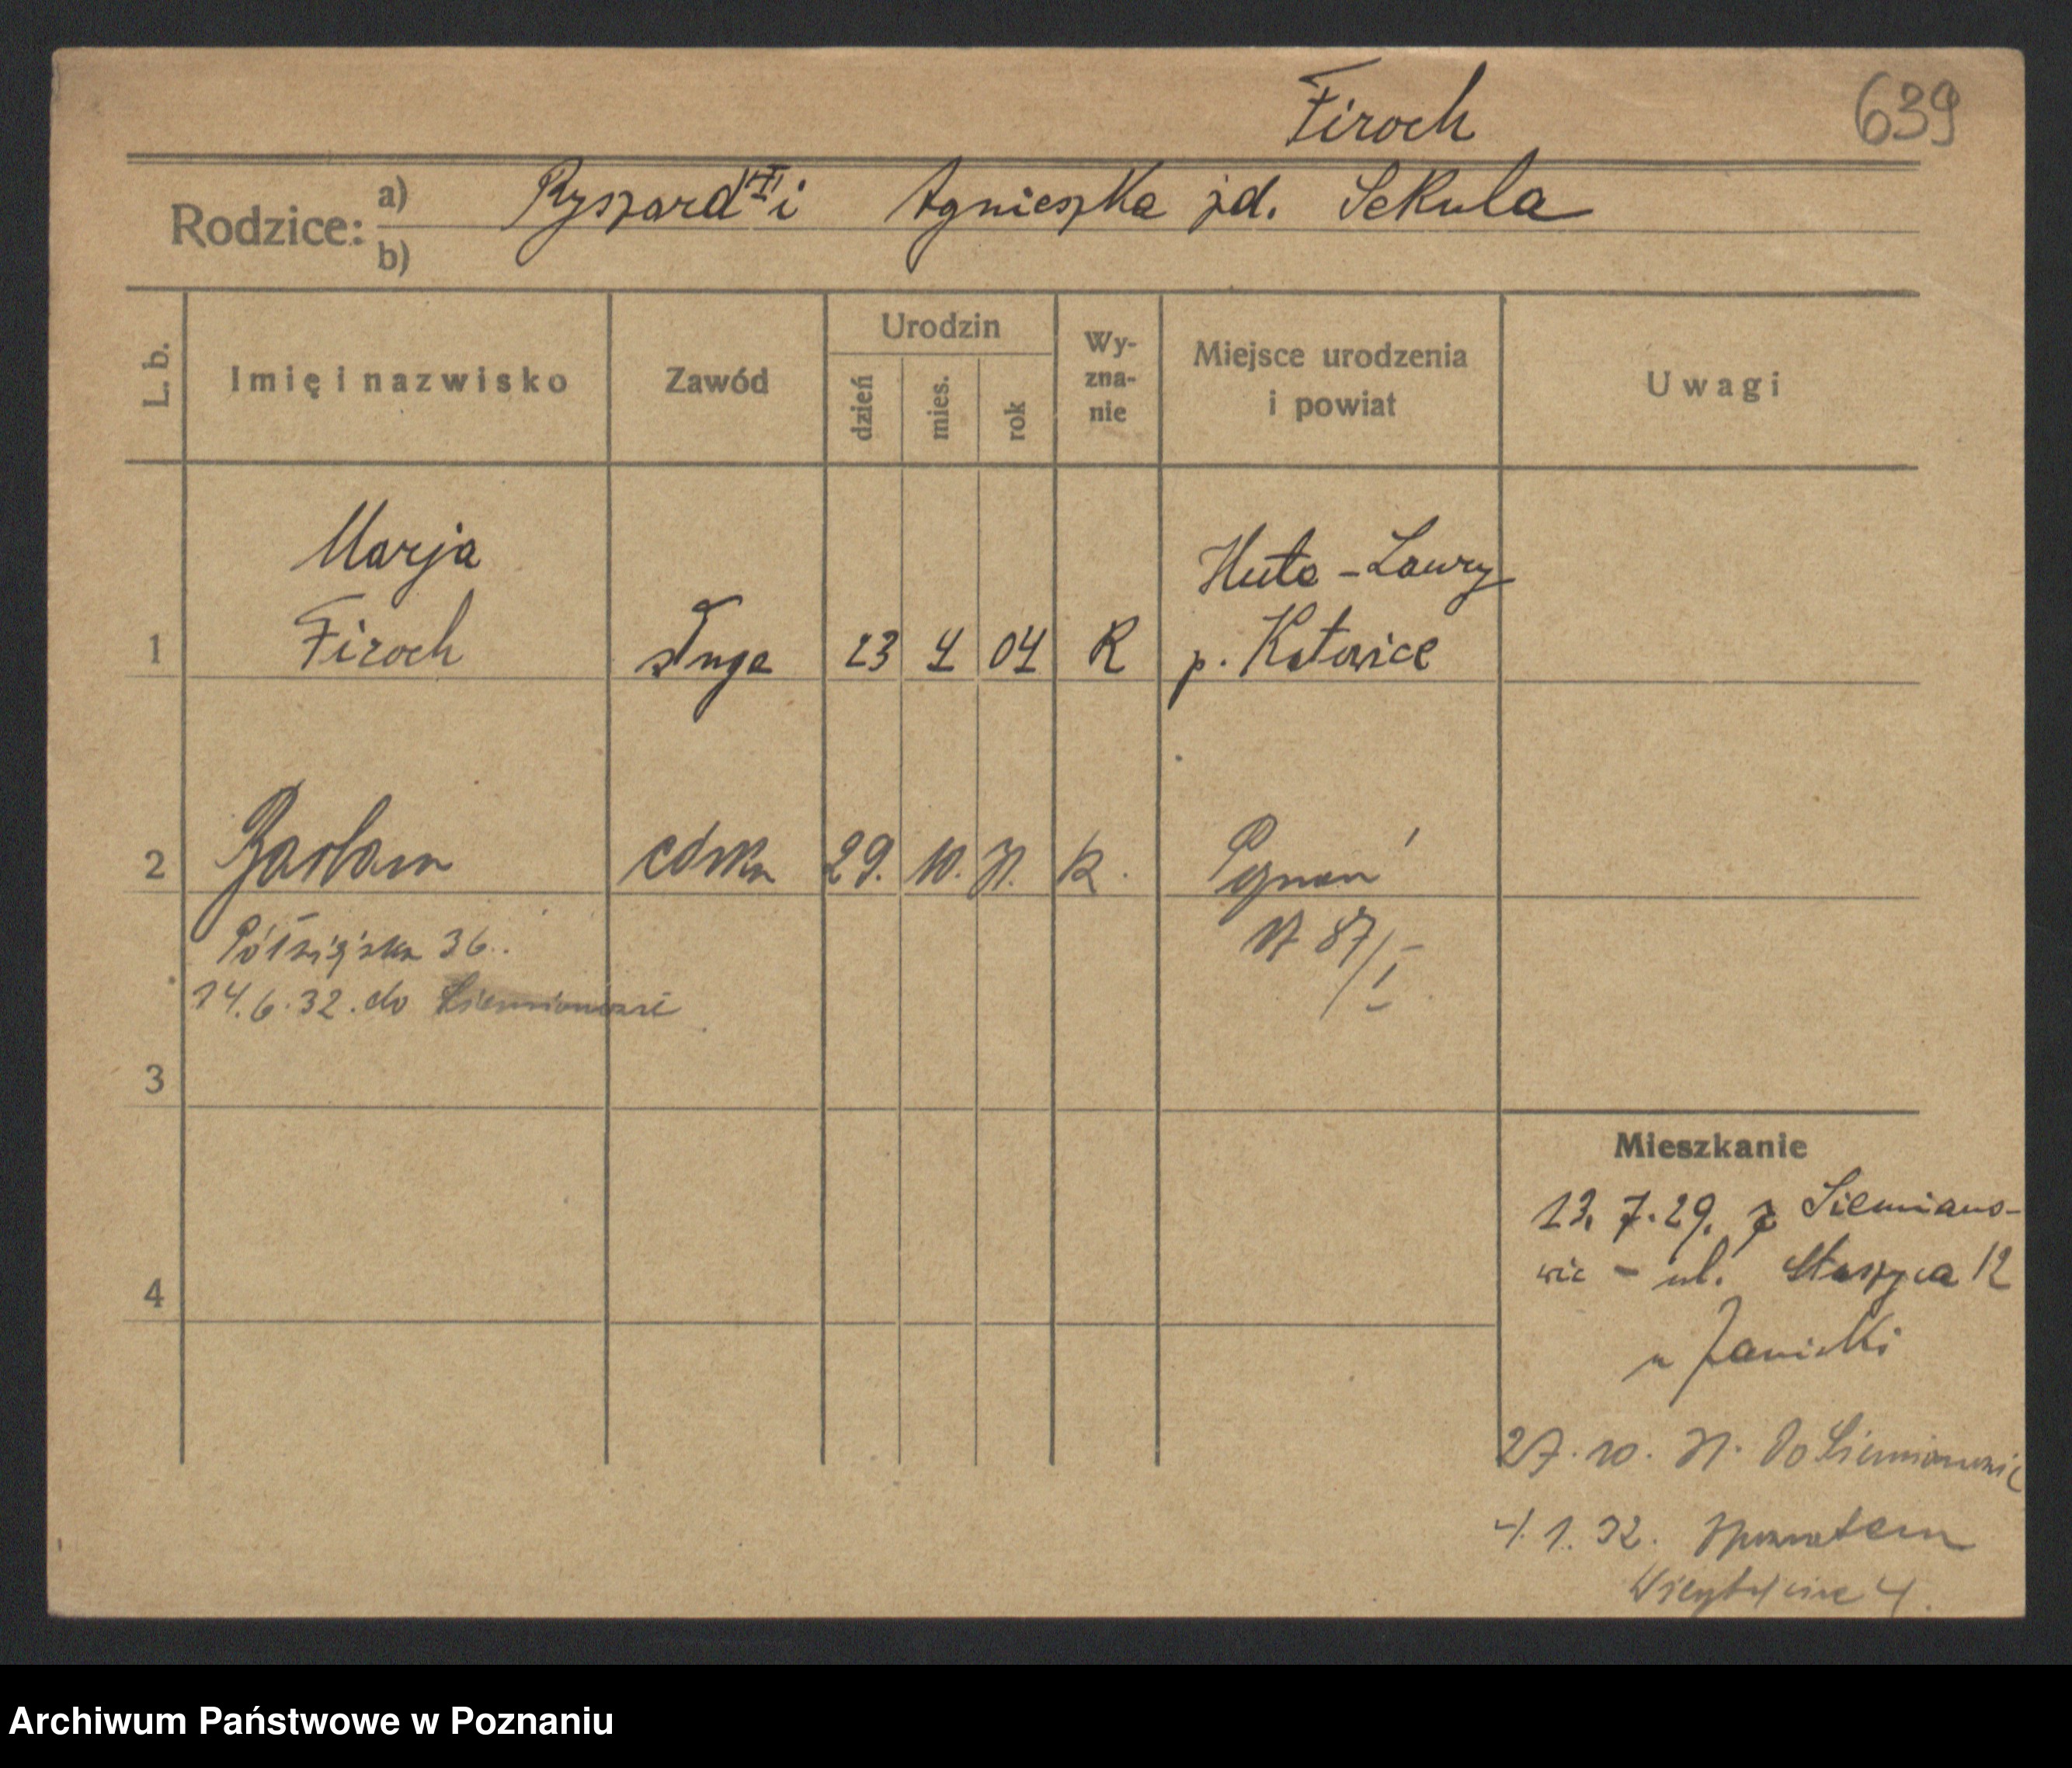 Firoch
639
Rodzice: a) Ryszard i Agnieszka zd. Sekula
b)
L. b.
Imię i nazwisko
Zawód
Urodzin
dzień
mies.
rok
Wy-
zna-
nie
Miejsce urodzenia
i powiat
Uwagi
Marja
Huta-Laury
1 Firoch sługa 23 4 04 R p. Katowice
2 Barbara córka 29. 10. 31. R. Poznań
Półwiejska 36.
14.6.32. do Siemianowic
3
4
Mieszkanie
13. 7. 29. z Siemiano-
wic - ul. Staszyca 12
u Janicki
27. 10. 31. Do Siemianowic
4. 1. 32. z powrotem
4.
Archiwum Państwowe w Poznaniu